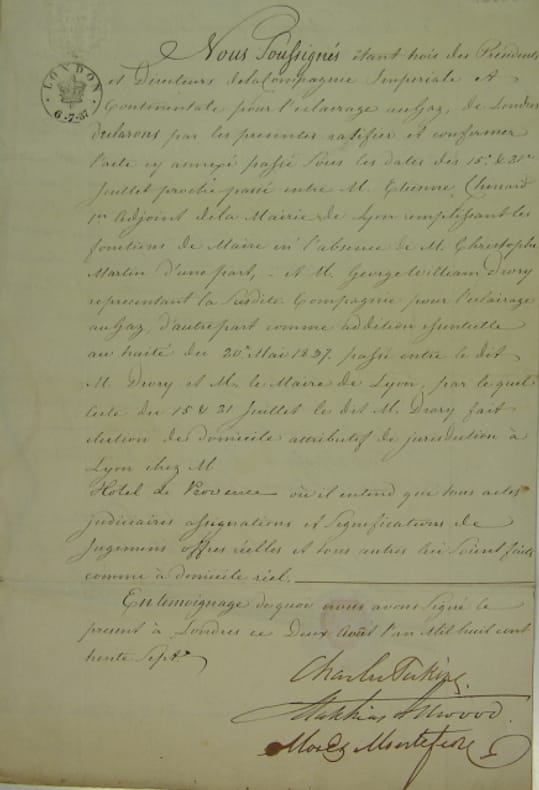 LONDON
6-7-37
Nous Soussignés étant trois des Présidents
et Directeurs de la Compagnie Impériale et
Continentale pour l'éclairage au Gaz, de Londres
déclarons par les présentes ratifier et confirmer
l'acte cy annexé passé sous les dates des 15 & 21
Juillet proche passé entre M. Etienne Chinard
1er Adjoint de la Mairie de Lyon remplissant les
fonctions de Maire en l'absence de M. Christophe
Martin d'une part, - et M. George William Drory
représentant la susdite Compagnie pour l'éclairage
au Gaz, d'autre part comme addition essentielle
au traité du 20 Mai 1837 passé entre le dit
M. Drory et M. le Maire de Lyon, par le quel
acte du 15 & 21 Juillet le dit M. Drory fait
élection de domicile attributif de jurisdiction à
Lyon chez M
Hôtel de Provence où il entend que tous actes
judiciaires assignations et significations de
Jugemens offres réelles et tous autres lui soient faits
comme à domicile réel.
En témoignage de quoi nous avons signé le
présent à Londres ce Deux Août l'an Mil huit cent
trente Sept.
Charles Perkins
Matthias Attwood.
Moses Montefiore